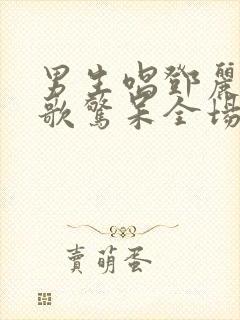 男生唱鄧麗
歌驚呆全場
賣萌蛋